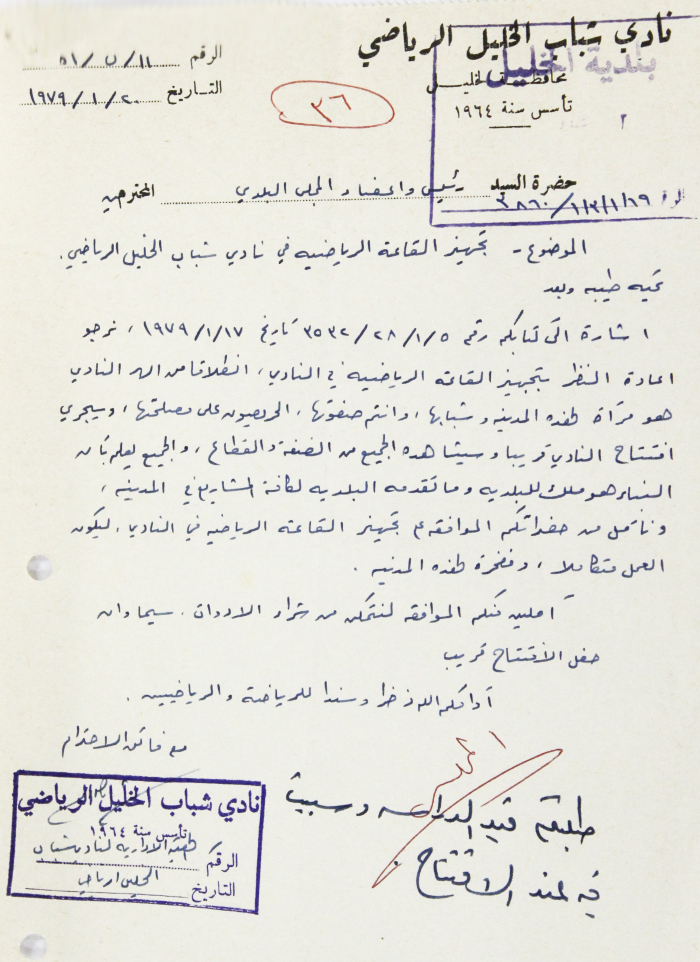 نادي شباب الخليل الرياضي
بلدية الخليل
محافظة الخليل
تأسس سنة ١٩٦٤
الرقم ١١/ن/٥١
التاريخ ١٩٧٩/١/٢٠
٣٦
٣٨٦٠/١/٣/١/١٩
حضرة السيد رئيس واعضاء المجلس البلدي المحترمين
الموضوع - تجهيز القاعة الرياضيه في نادي شباب الخليل الرياضي.
تحيه طيبه وبعد
اشارة الى كتابكم رقم ٣٥٣٢/٢٨/١/٥ تاريخ ١٩٧٩/١/١٧ ، نرجو
اعادة النظر بتجهيز القاعه الرياضيه في النادي، انطلاقا من ان النادي
هو مرآة لهذه المدينه وشبابها، وانتم صفوتها، الحريصون على مصلحتها، وسيجري
افتتاح النادي قريبا وسيشاهده الجميع من الضفة والقطاع، والجميع يعلم بأن
البناء هو ملك للبلديه وما تقدمه البلديه لكافة المشاريع في المدينه،
ونأمل من حضراتكم الموافقه على تجهيز القاعه الرياضيه في النادي، ليكون
العمل متكاملا، ومفخرة لهذه المدينه.
آملين منكم الموافقه لنتمكن من شراء الادوات. سيما وان
حفل الأفتتاح قريب
أدامكم الله ذخرا وسندا للرياضة والرياضيين.
مع فائق الاحترام
نادي شباب الخليل الرياضي
تأسس سنة ١٩٦٤
الهيئة الادارية لنادي شباب
الرقم
الخليل الرياضي
التاريخ
قيد الدراسه وسيبت
فيه عند الافتتاح.